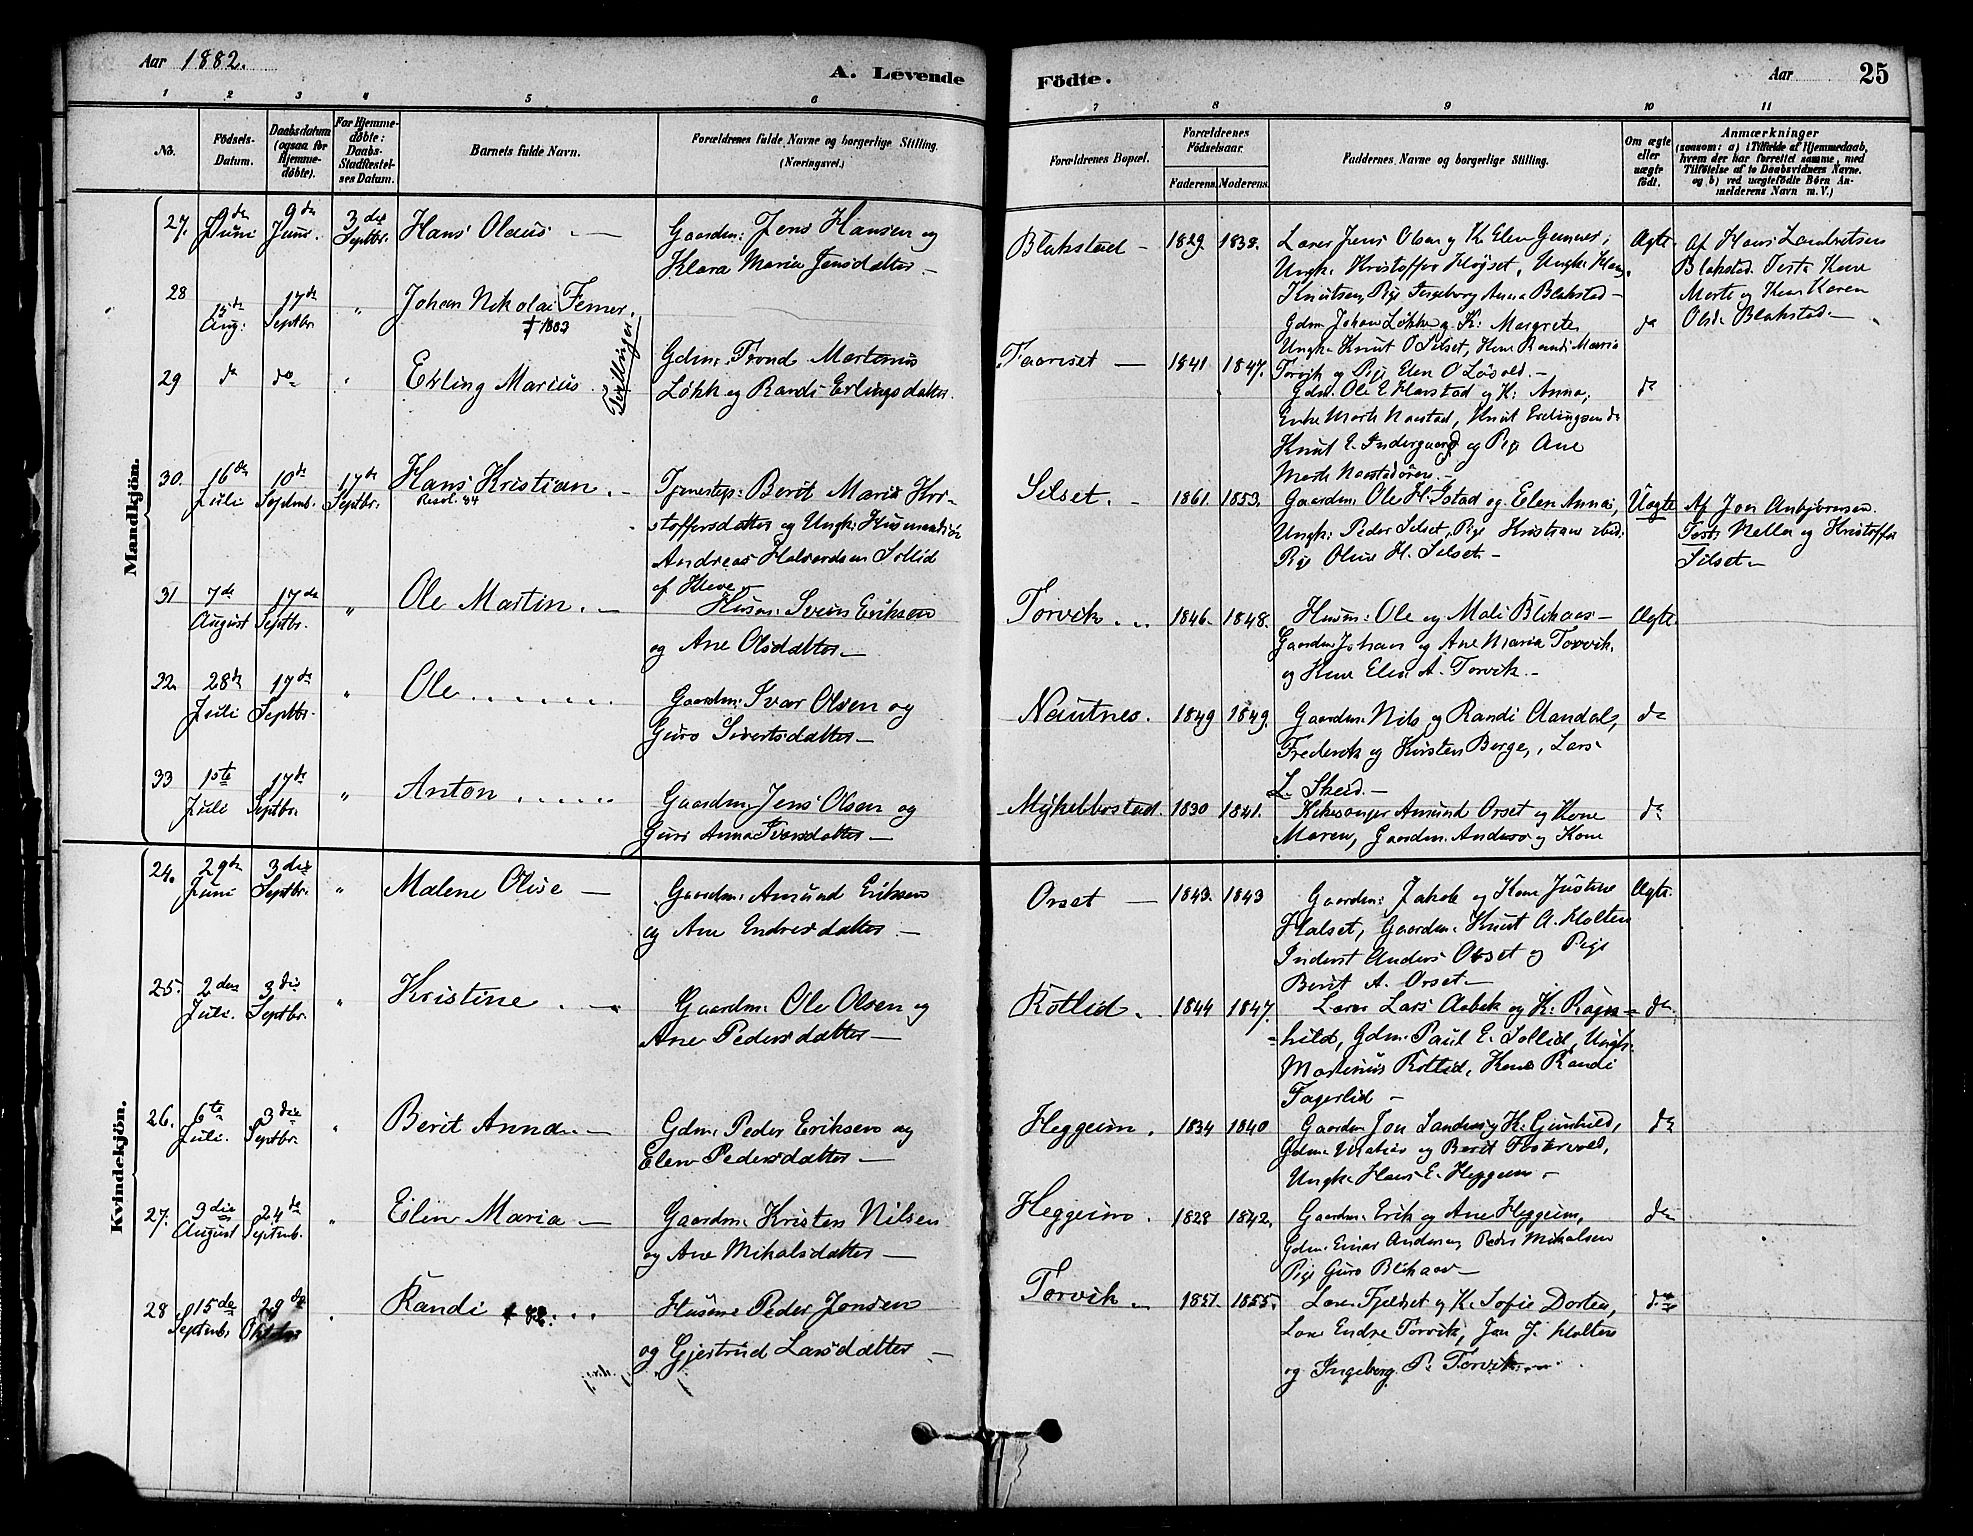 Aar 1882.
A. Levende
Födte.
Aar
25
1 2 3 4 5 6 7 8 9 10 11
No.
Födsels-
Datum.
Daabsdatum
(ogsaa for
Hjemme-
døbte).
For Hjemme-
døbte:
Daabs-
Stadfæstel-
ses Datum.
Barnets fulde Navn.
Forældrenes fulde Navne og borgerlige Stilling.
(Næringsvei.)
Forældrenes Bopæl.
Forældrenes
Födselsaar.
Faderens. Moderens.
Faddernes Navne og borgerlige Stilling.
Om ægte
eller
uægte
født.
Anmærkninger
(saasom: a) i Tilfælde af Hjemmedaab,
hvem der har forrettet samme, med
Tilføielse af to Daabsvidners Navne.
og b) ved uægtefødte Børn An-
melderens Navn m. V.)
Mandkjön.
27. 9de Juni 9de Juni. 3die Septbr. Hans Olaus. —
Gaardm: Jens Hansen og
Klara Maria Jensdatter —
Blakstad — 1829 1838.
Lærer Jens Olsen og K. Elen Gunnes;
Ungk. Kristoffer Høyset, Ungk. Hans
Knutsen, Pige Ingeborg Anna Blakstad —
Ægte.
Af Hans Lambretsen
Blakstad. Testa Kone
Marte og Kone Karen
Olsd. Blakstad. —
28 15de Aug: 17de Septbr. " Johan Nikolai Ferner.
† 1883
Tvillinger
Gdm. Johan Løkke og K. Margrete,
Ungk. Knut O Silset, Kone Randi Maria
Torvik og Pige Elen O Løsvold. —
do
29 do do " Erling Marius
Gdm: Trond Martinus
Løkk og Randi Erlingsdatter.
Taarset — 1841. 1847.
Gdm. Ole E Harstad og K. Anna,
Enke Marte Naastad, Knut Erlingsen do
Knut E. Indergaard og Pige Ane
Marte Naastadøren. —
do
30. 16de Juli 10de Septemb. 17de Septbr. Hans Kristian. —
Tjenestep: Berit Maria Kri-
stoffersdatter og Ungk: Husmandssøn
Andreas Halvordsen Sollid
af Kleve —
Silset. — 1861. 1853.
Gaardm: Ole H. Istad og Elen Anna,
Ungk: Peder Silset, Pige Kristiane ibid.
Pige Oline H. Silset —
Uægte
Af Jon Anbjörnsen.
Test: Nella og Kristoffer
Silset —
31 7de August 17de Septbr. " Ole Martin. —
Husm: Svein Eriksen
og Ane Olsdatter —
Torvik. .. 1846. 1848.
Husm: Ole og Mali Blikaas —
Gaardm. Johan og Ane Maria Torvik.
og Kone Elen A. Torvik. —
Ægte.
32. 28de Juli 17de Septbr. " Ole
Gaardm: Ivar Olsen og
Guro Sivertsdatter —
Nautnes. 1849 1849.
Gaardm: Nils og Randi Aandal,
Frederik og Kirsten Berge, Lars
L. Skeid. —
do
33 1ste Juli 17de Septbr. " Anton
Gaardm: Jens Olsen og
Guri Anna Ivarsdatter —
Myklebostad. 1830 1841.
Kirkesanger Amund Orset og Kone
Maren, Gaardm. Anders og Kone
do
Kvindekjön.
24. 29de Juni 3die Septbr. " Malene Olise —
Gaardm: Amund Eriksen
og Ane Endresdatter —
Orset — 1843. 1843
Gaardm: Jakob og Kone Justine
Halset, Gaardm. Knut A. Holten
Inderst Anders Orset og Pige
Berit A. Orset —
Ægte.
25. 2den Juli. 3die Septbr. " Kristine . —
Gaardm: Ole Olsen og
Ane Pedersdatter —
Rotlid . 1844 1847.
Lærer Lars Aabek og K: Ragn-
hild, Gdm: Paul E. Sollid, Ungk.
Martinus Rotlid, Kone Randi
Fagerlid —
do.
26. 6te Juli. 3die Septbr. " Berit Anna. —
Gdm: Peder Eriksen og
Elen Pedersdatter —
Heggeim . 1834 1840
Gaardm Jon Sander og K. Gunhild,
Gdm: Matias og Berit Fiskevold,
Ungk. Hans E. Heggeim —
do
27. 3die August 24de Septemb. " Elen Maria —
Gaardm: Kristen Nilsen
og Ane Mikalsdatter —
Heggeim . 1828 1842.
Gaardm: Erik og Ane Heggeim,
Gdm: Einar Andersen, Peder Mikalsen
Pige Guro Blikaas —
do
28 15de Septemb. 29de Oktober Randi † 82. ...
Husm: Peder Jonsen
og Gjertrud Larsdatter —
Torvik — 1857. 1855.
Lærer Fjeldset og K. Sofie Dorten,
Lære Endre Torvik, Jon J. Holten
og Ingeborg P. Torvik
do